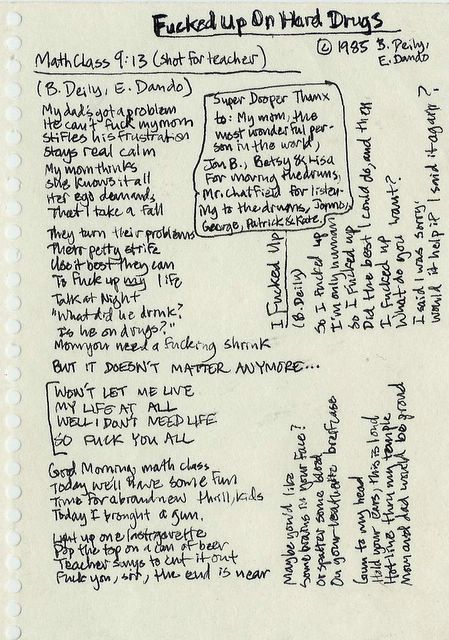 Fucked Up On Hard Drugs
© 1985 B. Deily,
E. Dando
Math Class 9:13 (shot for teacher)
(B. Deily, E. Dando)
My dad's got a problem
He can't fuck my mom
Stifles his frustration
Stays real calm
My mom thinks
she knows it all
Her ego demands
That I take a fall
They turn their problems
Their petty strife
Use it best they can
To fuck up my life
Talk at Night
"What did he drink?
Is he on drugs?"
Mom you need a fucking shrink
BUT IT DOESN'T MATTER ANYMORE...
WON'T LET ME LIVE
MY LIFE AT ALL
WELL I DON'T NEED LIFE
SO FUCK YOU ALL
Good Morning, math class
Today we'll have some fun
Time for a brand new thrill, kids
Today I brought a gun.
Light up one last
Pop the top on a can of beer
Teacher says to cut it out
Fuck you, sir, the end is near
Super Dooper Thanx
to: My mom, the
most wonderful per-
son in the world,
Jon B., Betsy & Lisa
For moving the drums,
Mr. Chatfield for listen-
ing to the drums,
George, Patrick & Kate.
I Fucked Up
(B. Deily)
So I fucked up
I'm only human
So I fucked up
Did the best I could do, and then
I fucked up
What do you want?
I said I was sorry
would it help if I said it again?
Maybe you'd like
Some brains in your face?
Or spatter some blood
On your leatherette briefcase
Gun to my head
Hold your ears, this is loud
Hot line thru my temple
Mom and dad would be proud